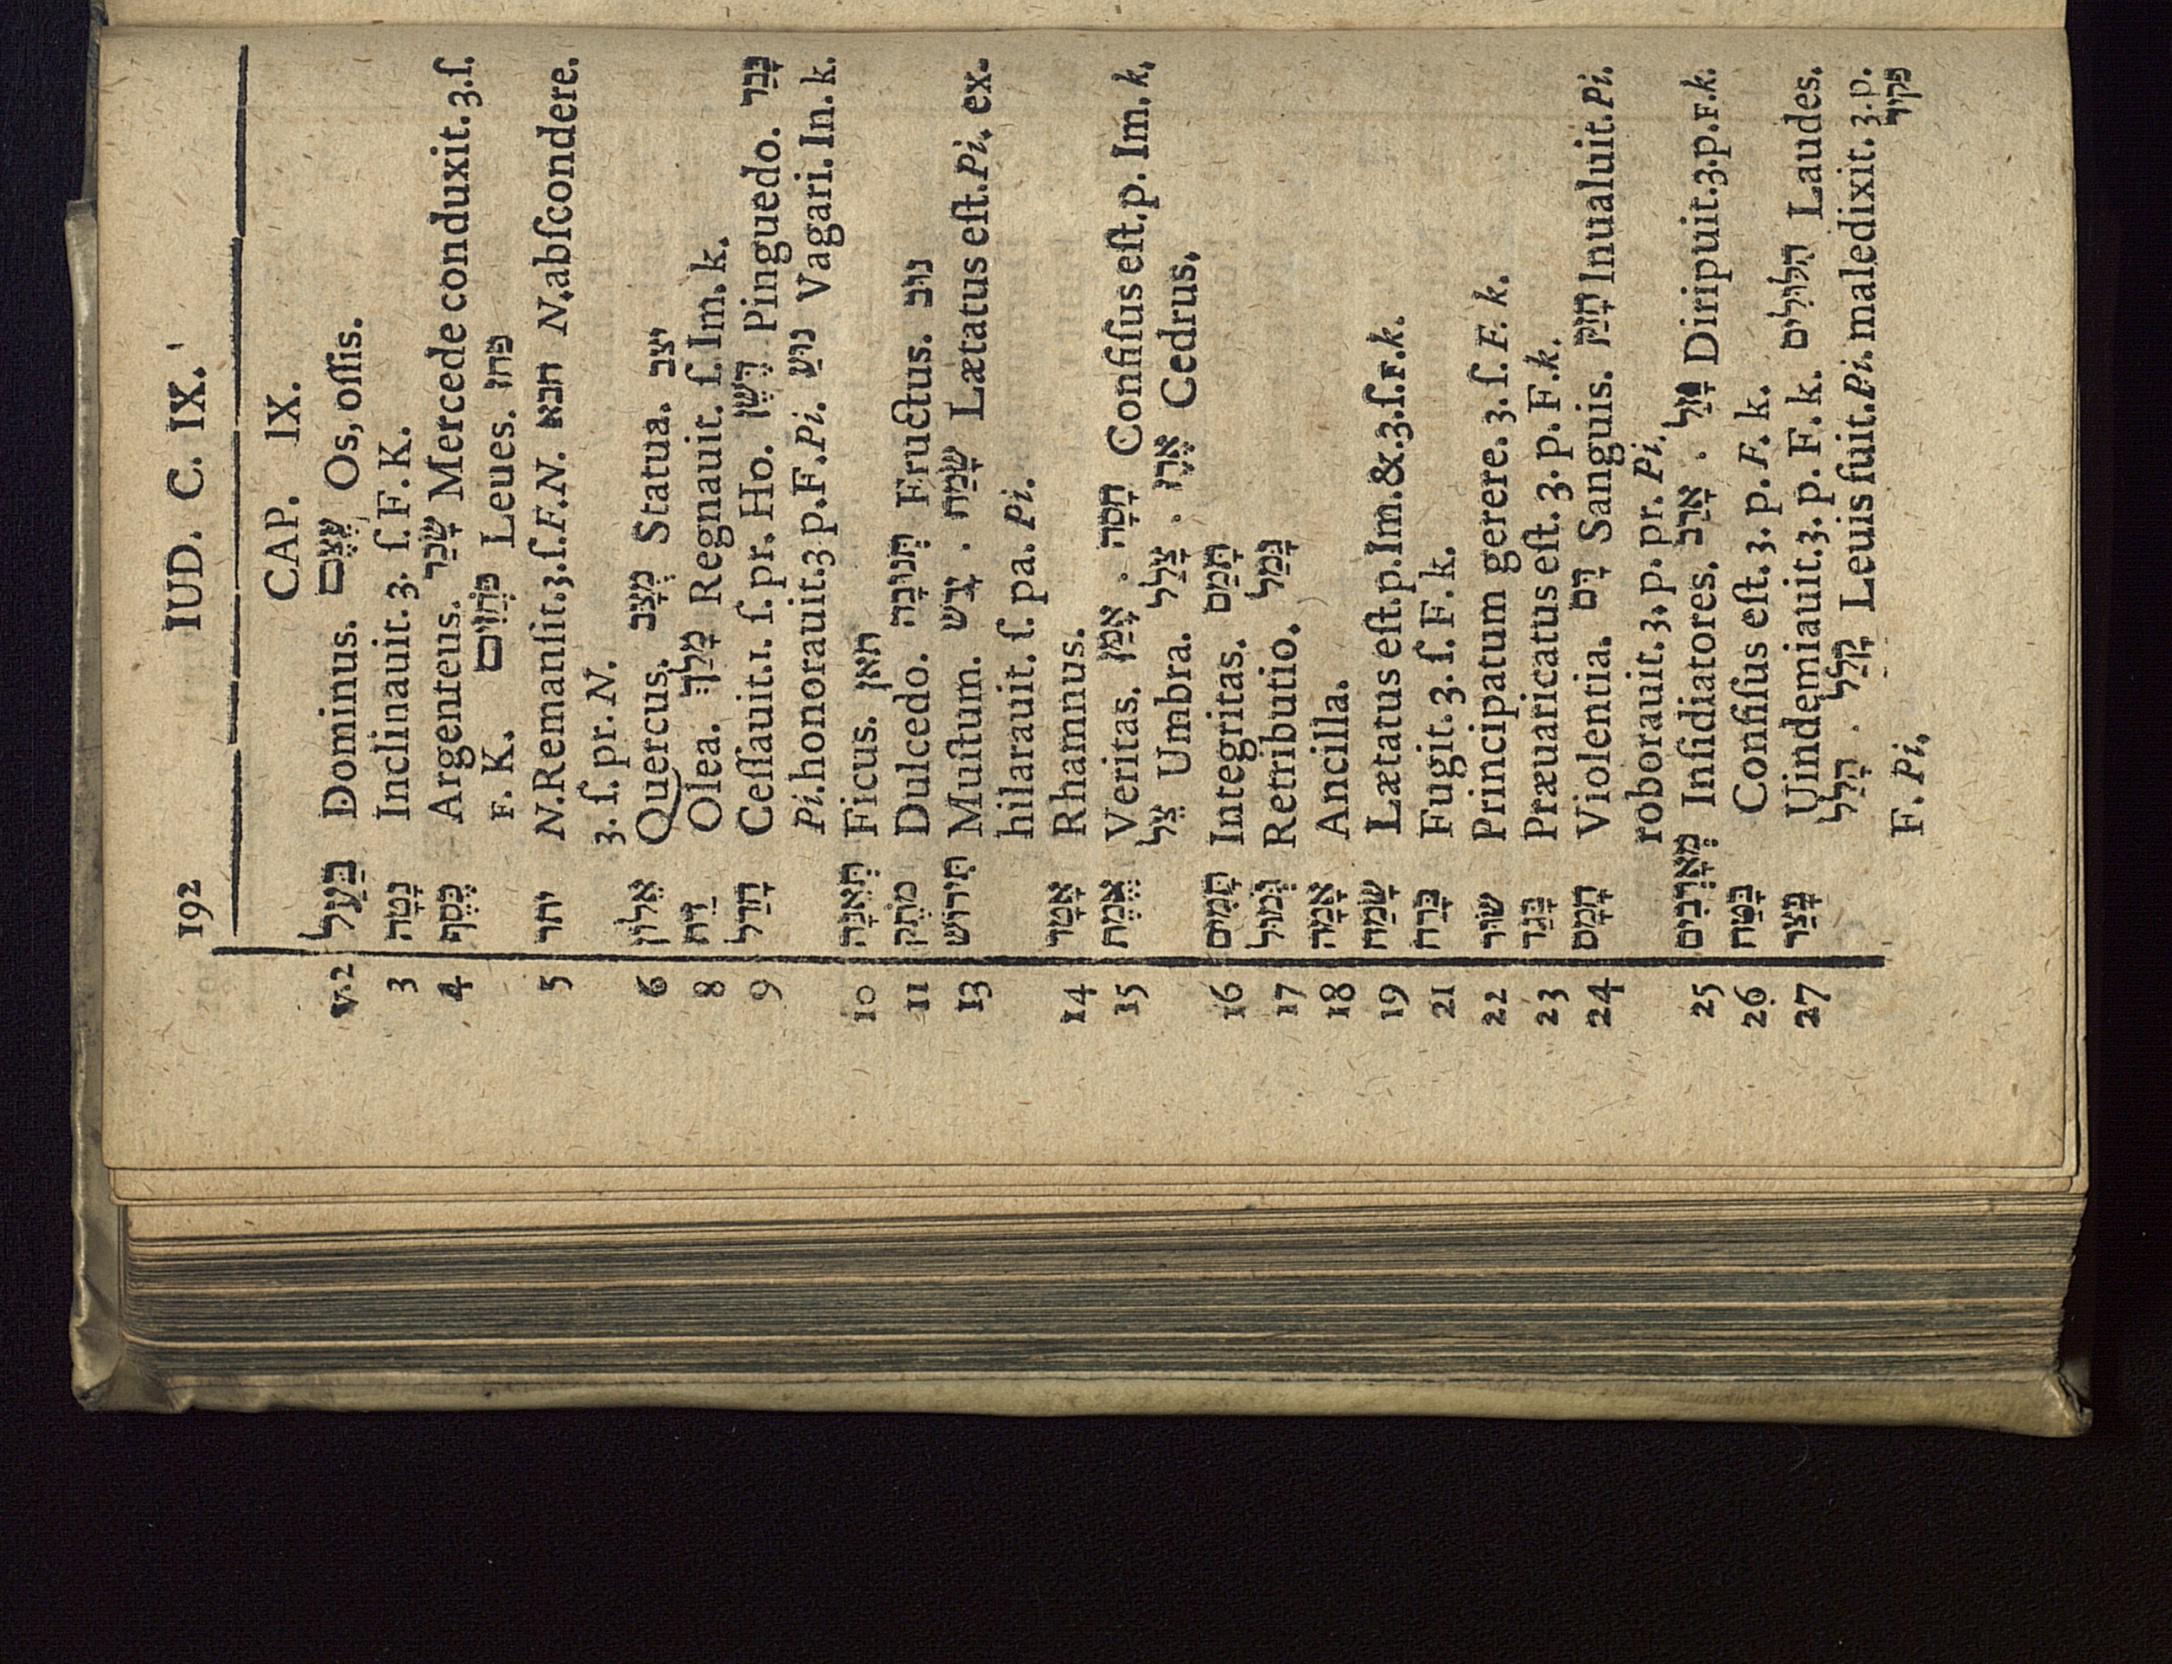 192 IUD. C. IX.
CAP. IX.
v.2 בַּעַל Dominus. עֶצֶם Os, oſſis.
3 נָטָה Inclinauit. 3. ſ. F. K.
4 כֶּסֶף Argenteus. שָׂכַר Mercede conduxit. 3.ſ.
F. K. פֹּחֲזִים Leues. פחז
5 יתר N. Remanſit. 3. ſ. F. N. חבא N. abſcondere.
3. ſ. pr. N.
6 אֵלוֹן Quercus. מֻצָּב Statua. יצב
8 זַיִת Olea. מָלַךְ Regnauit. ſ. Im. k.
9 חָדַל Ceſſauit. 1. ſ. pr. Ho. דֶּשֶׁן Pinguedo. כָּבַד
Pi. honorauit. 3 p. F. Pi. נוּעַ Vagari. In. k.
10 תְּאֵנָה Ficus. תאן
11 מֹתֶק Dulcedo. תְּנוּבָה Fructus. נוּב
13 תִּירוֹשׁ Muſtum. ירש . שָׂמַח Lætatus eſt. Pi. ex-
hilarauit. ſ. pa. Pi.
14 אָטָד Rhamnus.
15 אֱמֶת Veritas. אָמַן . חָסָה Confiſus eſt. p. Im. k.
צֵל Umbra. צָלַל . אֶרֶז Cedrus.
16 תָּמִים Integritas. תָּמַם
17 גְּמוּל Retributio. גָּמַל
18 אָמָה Ancilla.
19 שָׂמַח Lætatus eſt. p. Im. &. 3. ſ. F. k.
21 בָּרַח Fugit. 3. ſ. F. k.
22 שׂוּר Principatum gerere. 3. ſ. F. k.
23 בָּגַד Præuaricatus eſt. 3. p. F. k.
24 חָמָס Violentia. דָּם Sanguis. חָזַק Inualuit. Pi.
roborauit. 3. p. pr. Pi.
25 מְאָרְבִים Inſidiatores. אָרַב . גָּזַל Diripuit. 3. p. F. k.
26 בָּטַח Confiſus eſt. 3. p. F. k.
27 בָּצַר Uindemiauit. 3. p. F. k. הִלּוּלִים Laudes.
הָלַל . קָלַל Leuis fuit. Pi. maledixit. 3. p.
F. Pi. פקיד